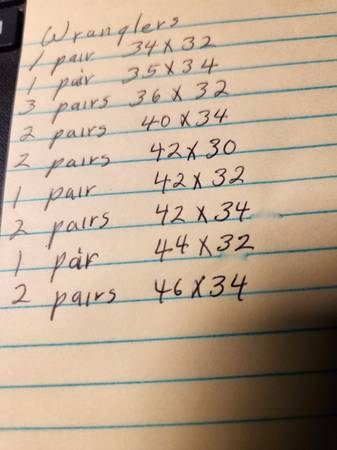 Wranglers
1 pair 34 X 32
1 pair 35 X 34
3 pairs 36 X 32
2 pairs 40 X 34
2 pairs 42 X 30
1 pair 42 X 32
2 pairs 42 X 34
1 pair 44 X 32
2 pairs 46 X 34